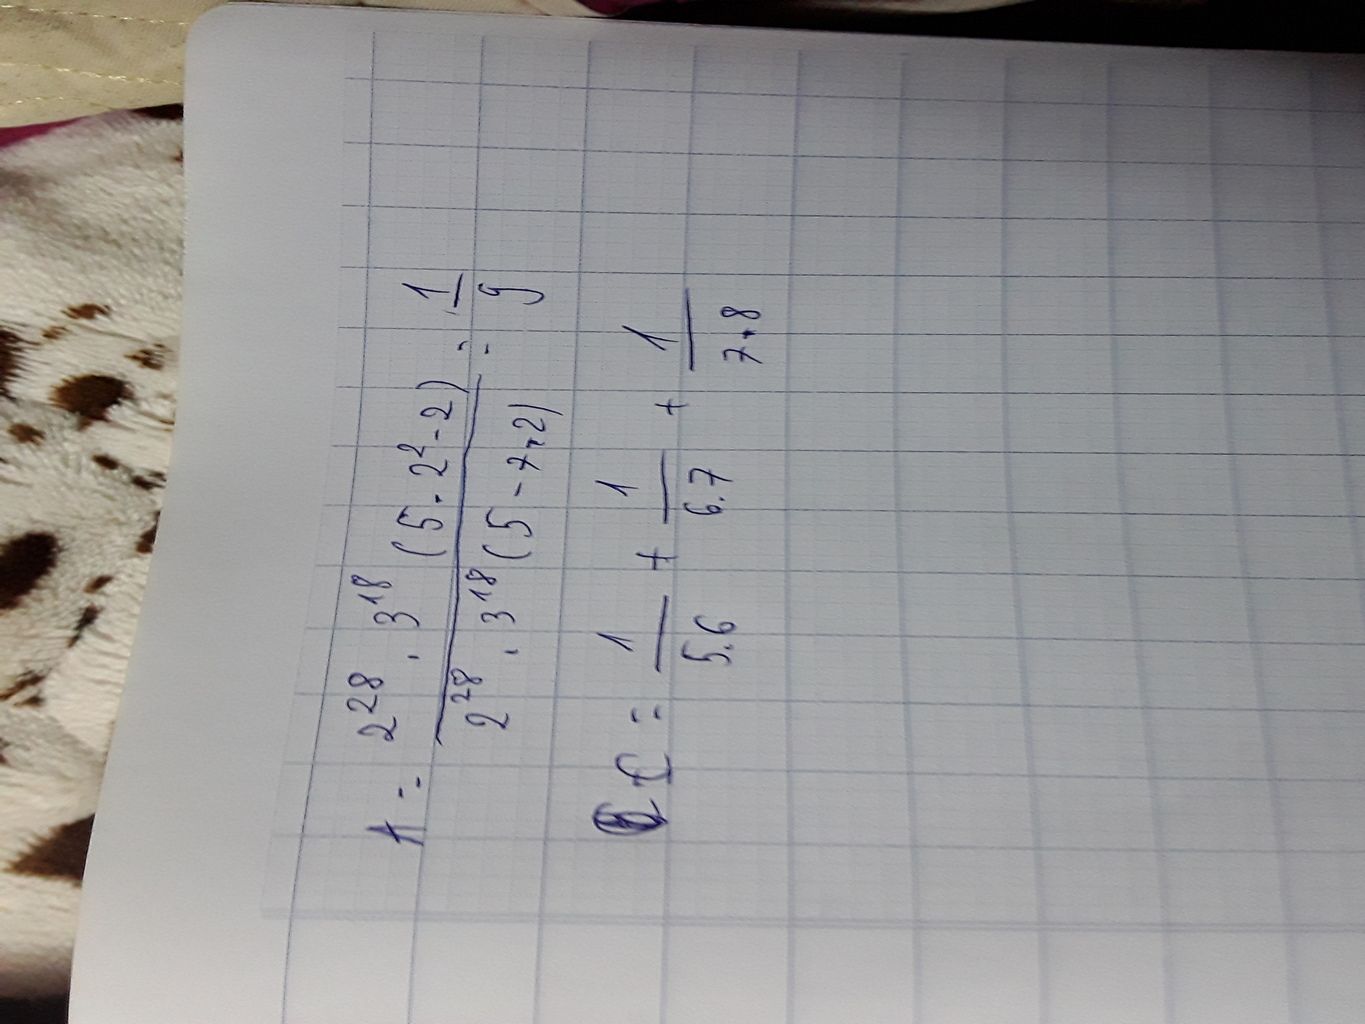 A = \frac{2^{28} . 3^{18} (5 . 2^2 - 2)}{2^{28} . 3^{18} (5 - 7.2)} = \frac{1}{9}
C = \frac{1}{5.6} + \frac{1}{6.7} + \frac{1}{7.8}